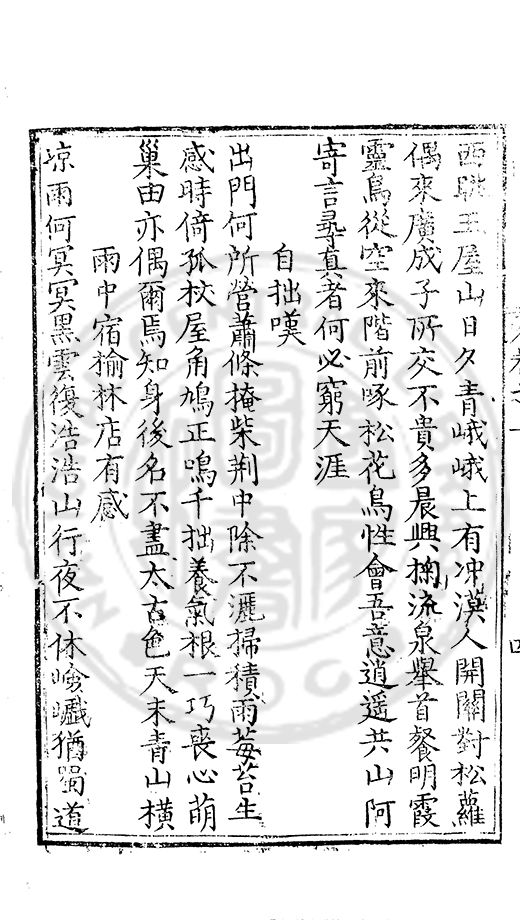 西眺王屋山日夕青峨峨上有冲漠人開關對松蘿
偶來廣成子所交不貴多晨興掬流泉舉首餐明霞
靈鳥從空來階前啄松花鳥性會吾意逍遥共山阿
寄言尋真者何必窮天涯
自拙嘆
出門何所營蕭條掩柴荆中除不灑掃積雨莓苔生
感時倚孤杖屋角鳩正鳴千拙養氣根一巧喪心萌
巢由亦偶爾焉知身後名不盡太古色天末青山橫
雨中宿榆林店有感
凉雨何冥冥黑雲復浩浩山行夜不休嶮巇猶蜀道
四